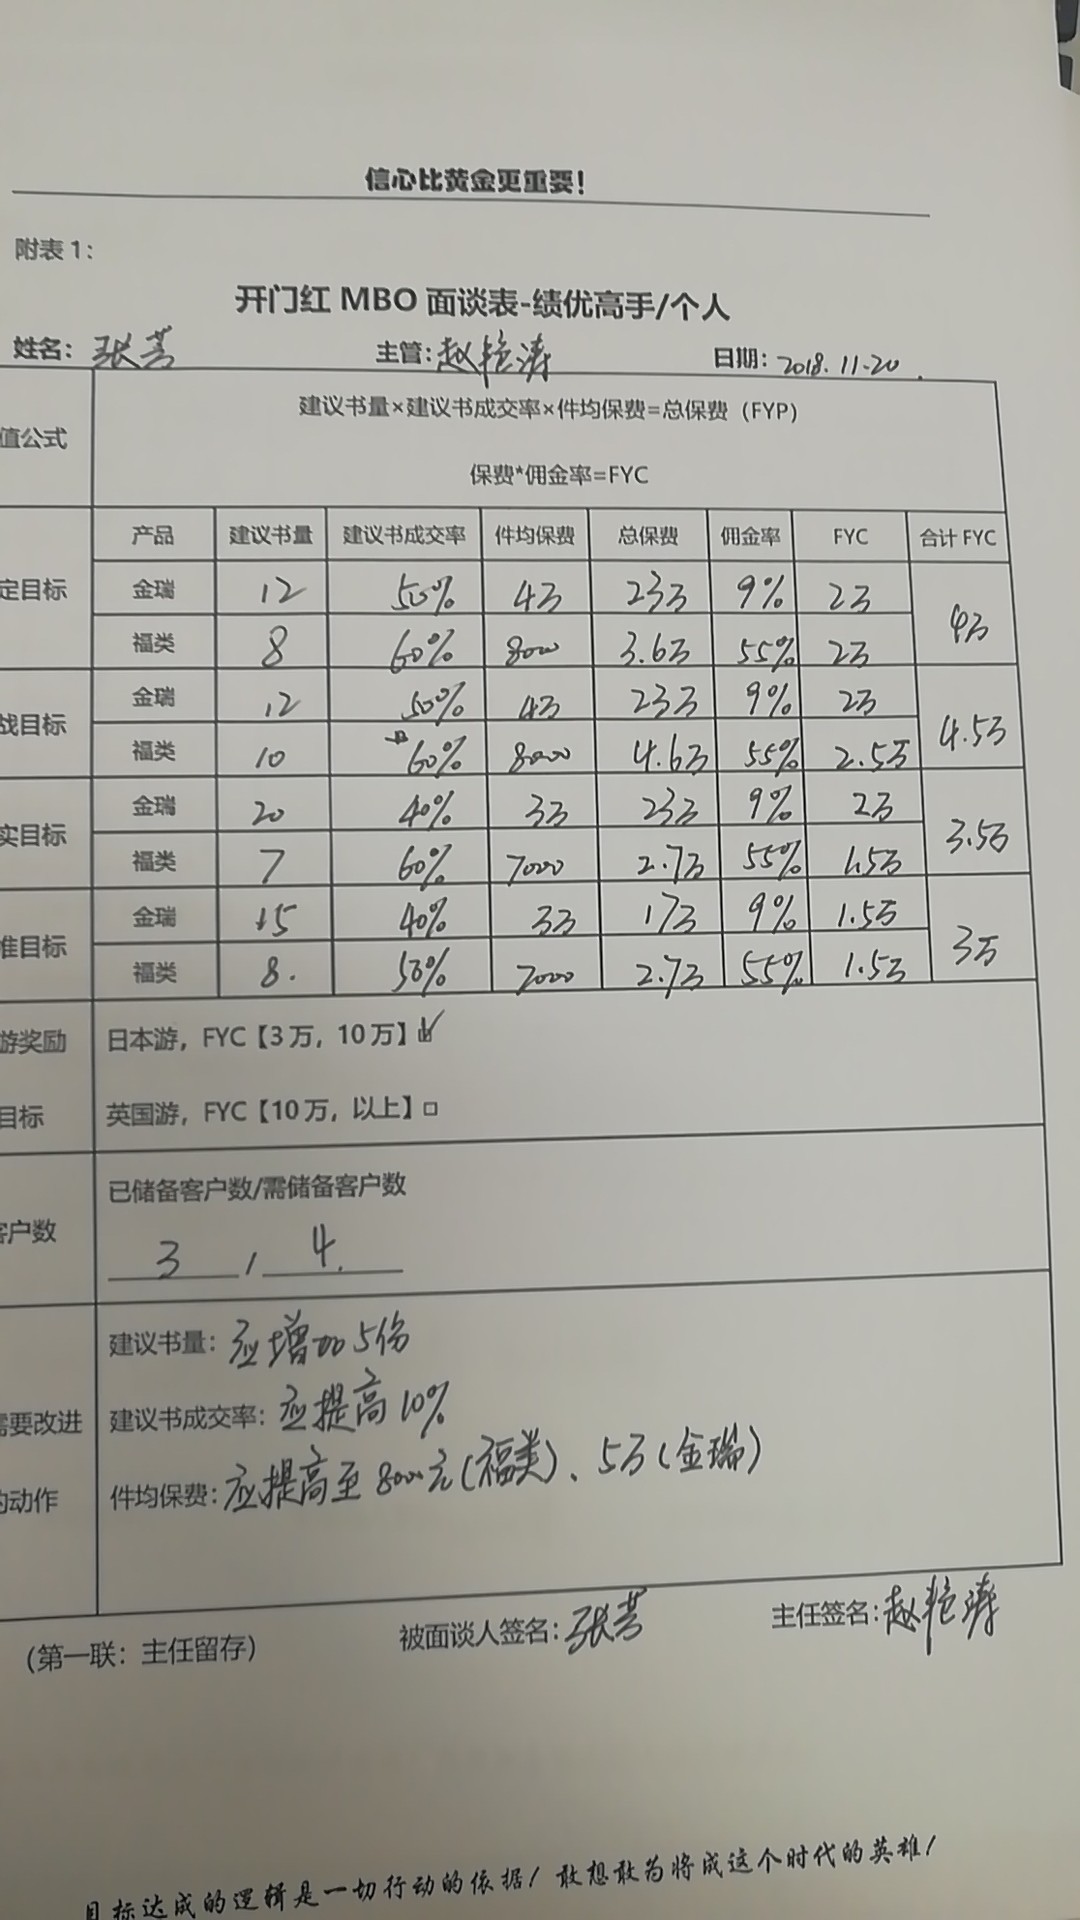 信心比黄金更重要！
附表1：
开门红 MBO 面谈表-绩优高手/个人
姓名：张芳 主管：赵艳涛 日期：2018.11.20.
值公式
建议书量×建议书成交率×件均保费=总保费（FYP）
保费*佣金率=FYC
产品 建议书量 建议书成交率 件均保费 总保费 佣金率 FYC 合计 FYC
定目标 金瑞 12 50% 4万 23万 9% 2万 4万
福类 8 60% 8000 3.6万 55% 2万
战目标 金瑞 12 50% 4万 23万 9% 2万 4.5万
福类 10 60% 8000 4.6万 55% 2.5万
实目标 金瑞 20 40% 3万 23万 9% 2万 3.5万
福类 7 60% 7000 2.7万 55% 1.5万
准目标 金瑞 15 40% 3万 17万 9% 1.5万 3万
福类 8. 50% 7000 2.7万 55% 1.5万
游奖励 日本游，FYC【3万，10万】☑
目标 英国游，FYC【10万，以上】□
已储备客户数/需储备客户数
客户数 3 / 4.
建议书量：应增加5份
需要改进 建议书成交率：应提高10%
的动作 件均保费：应提高至8000元(福类)、5万(金瑞)
（第一联：主任留存） 被面谈人签名：张芳 主任签名：赵艳涛
目标达成的逻辑是一切行动的依据！敢想敢为将成这个时代的英雄！